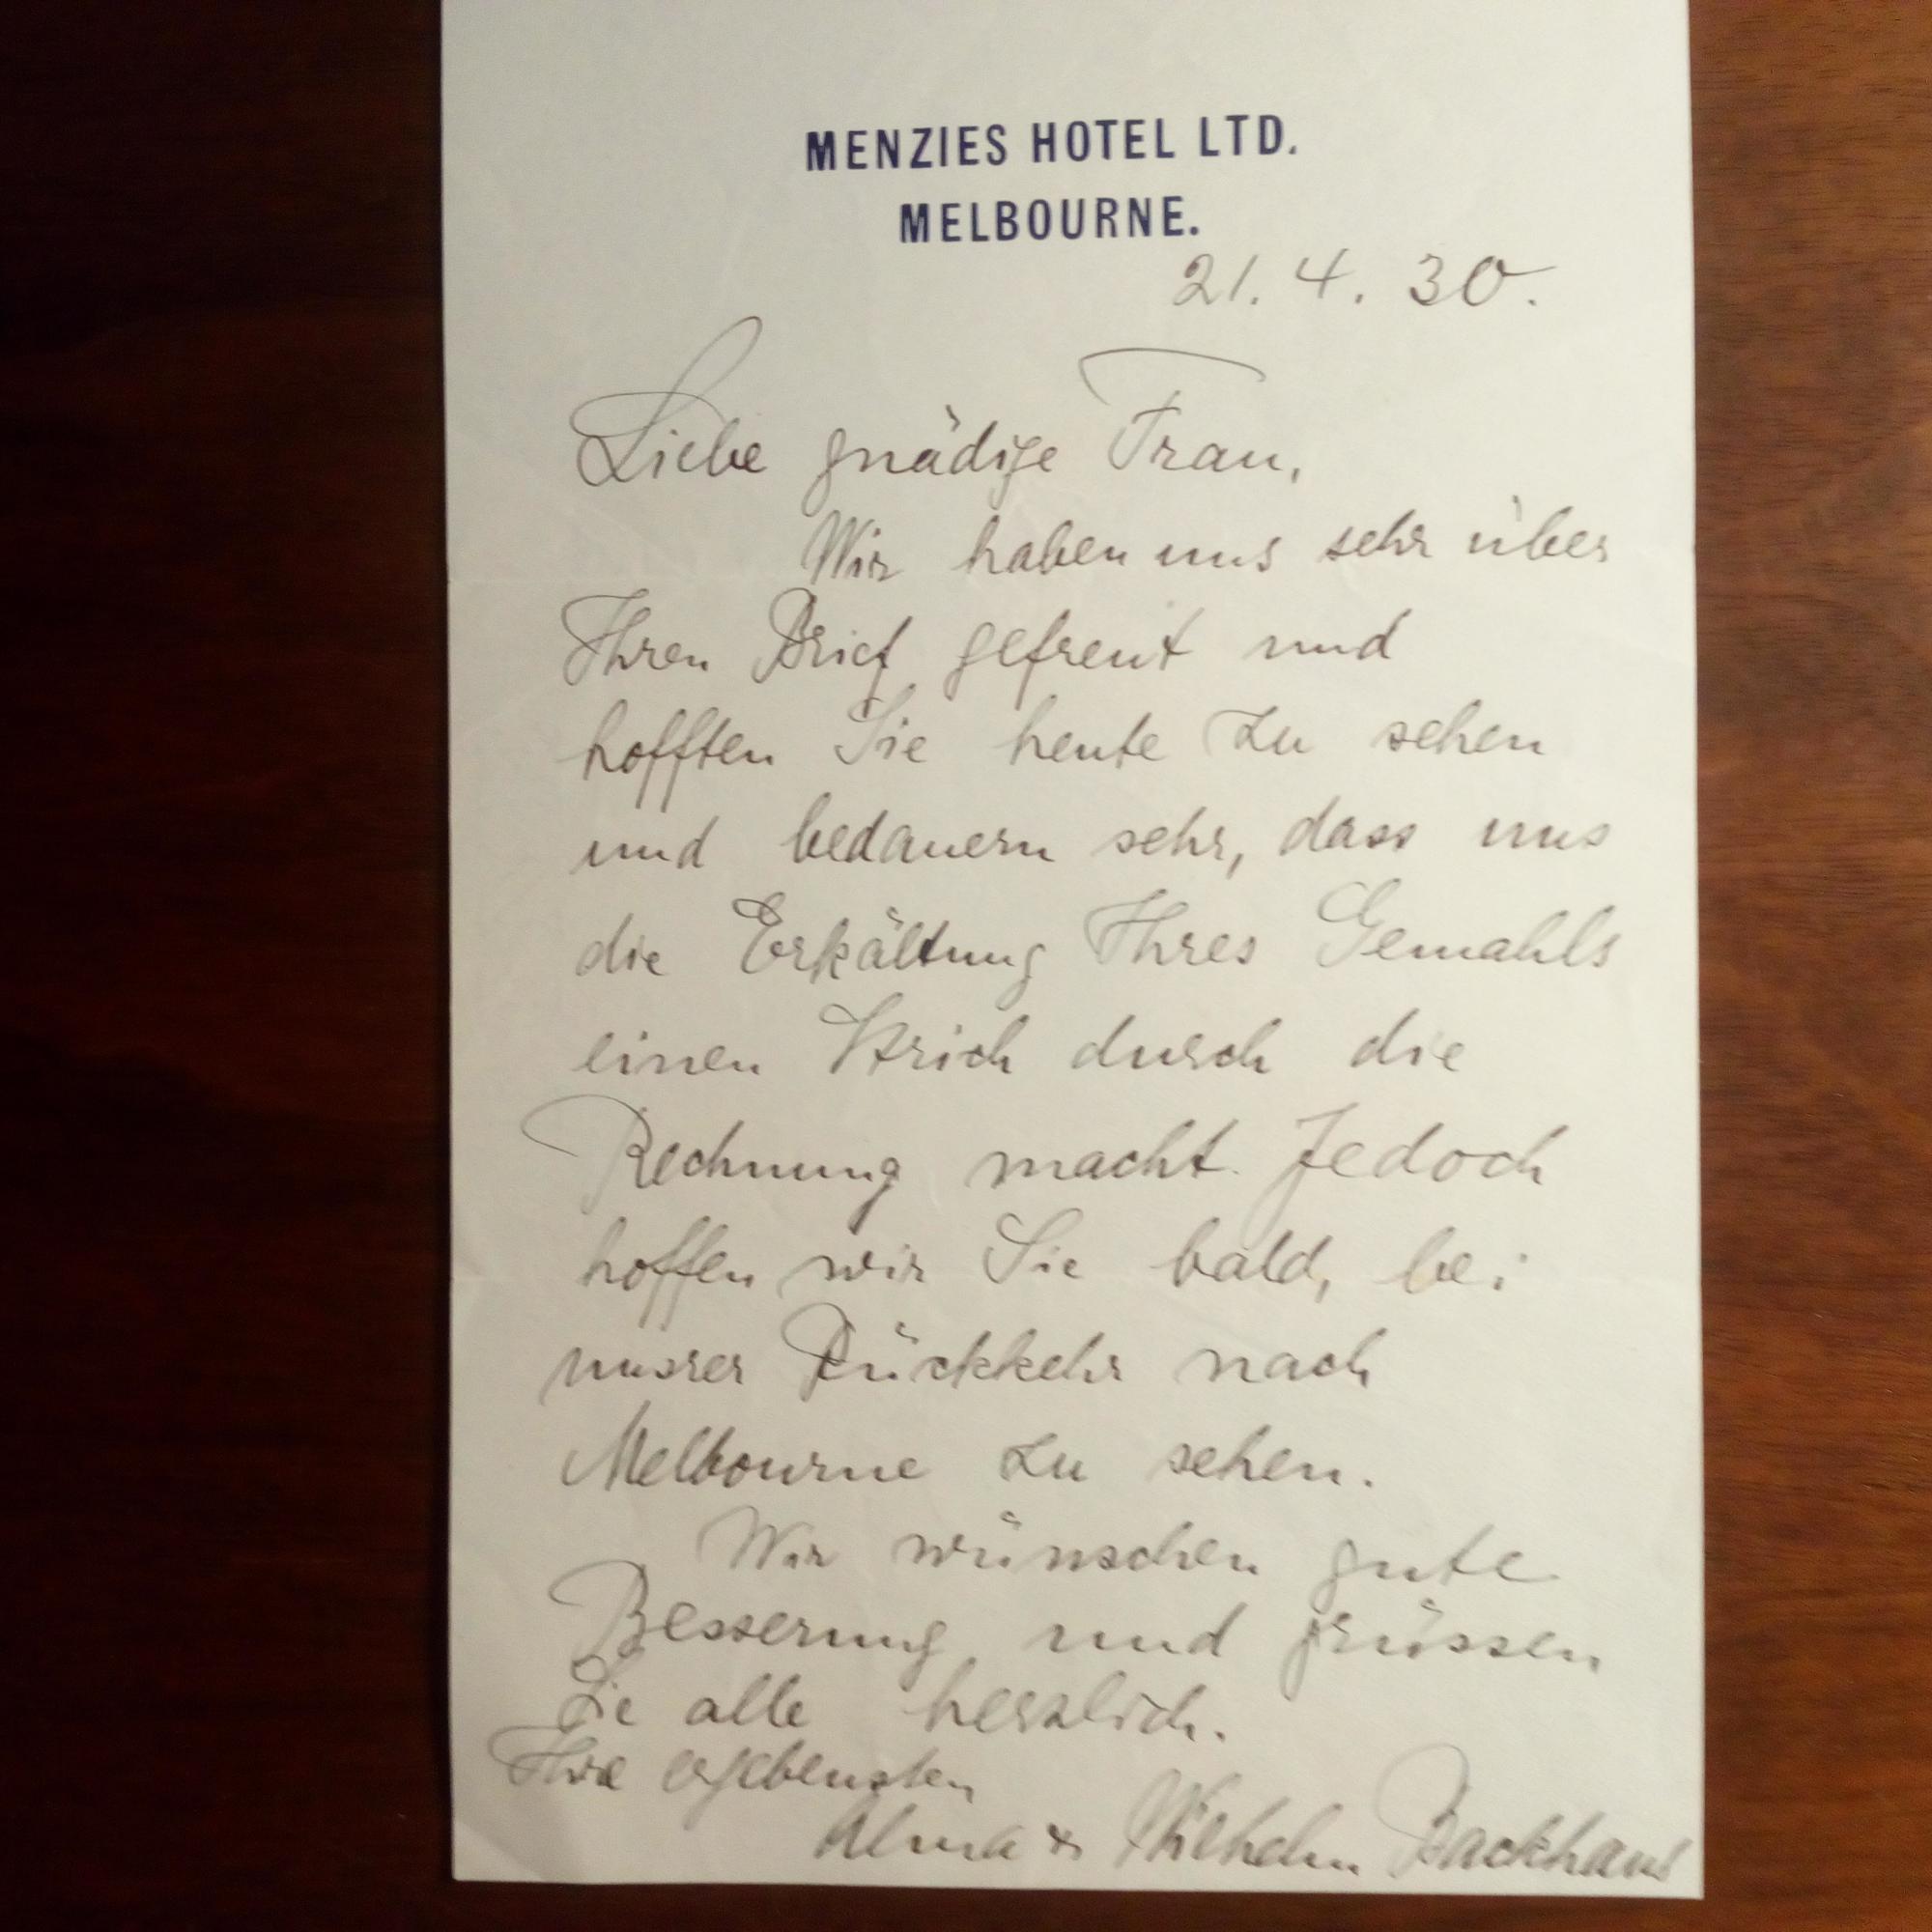 MENZIES HOTEL LTD.
MELBOURNE.
21. 4. 30.
Liebe gnädige Frau,
Wir haben uns sehr über
Ihren Brief gefreut und
hofften Sie heute zu sehen
und bedauern sehr, dass uns
die Erkältung Ihres Gemahls
einen Strich durch die
Rechnung macht. Jedoch
hoffen wir Sie bald, bei
unsrer Rückkehr nach
Melbourne zu sehen.
Wir wünschen gute
Besserung und grüssen
Sie alle herzlich.
Ihre ergebensten
Alma & Wilhelm Backhaus